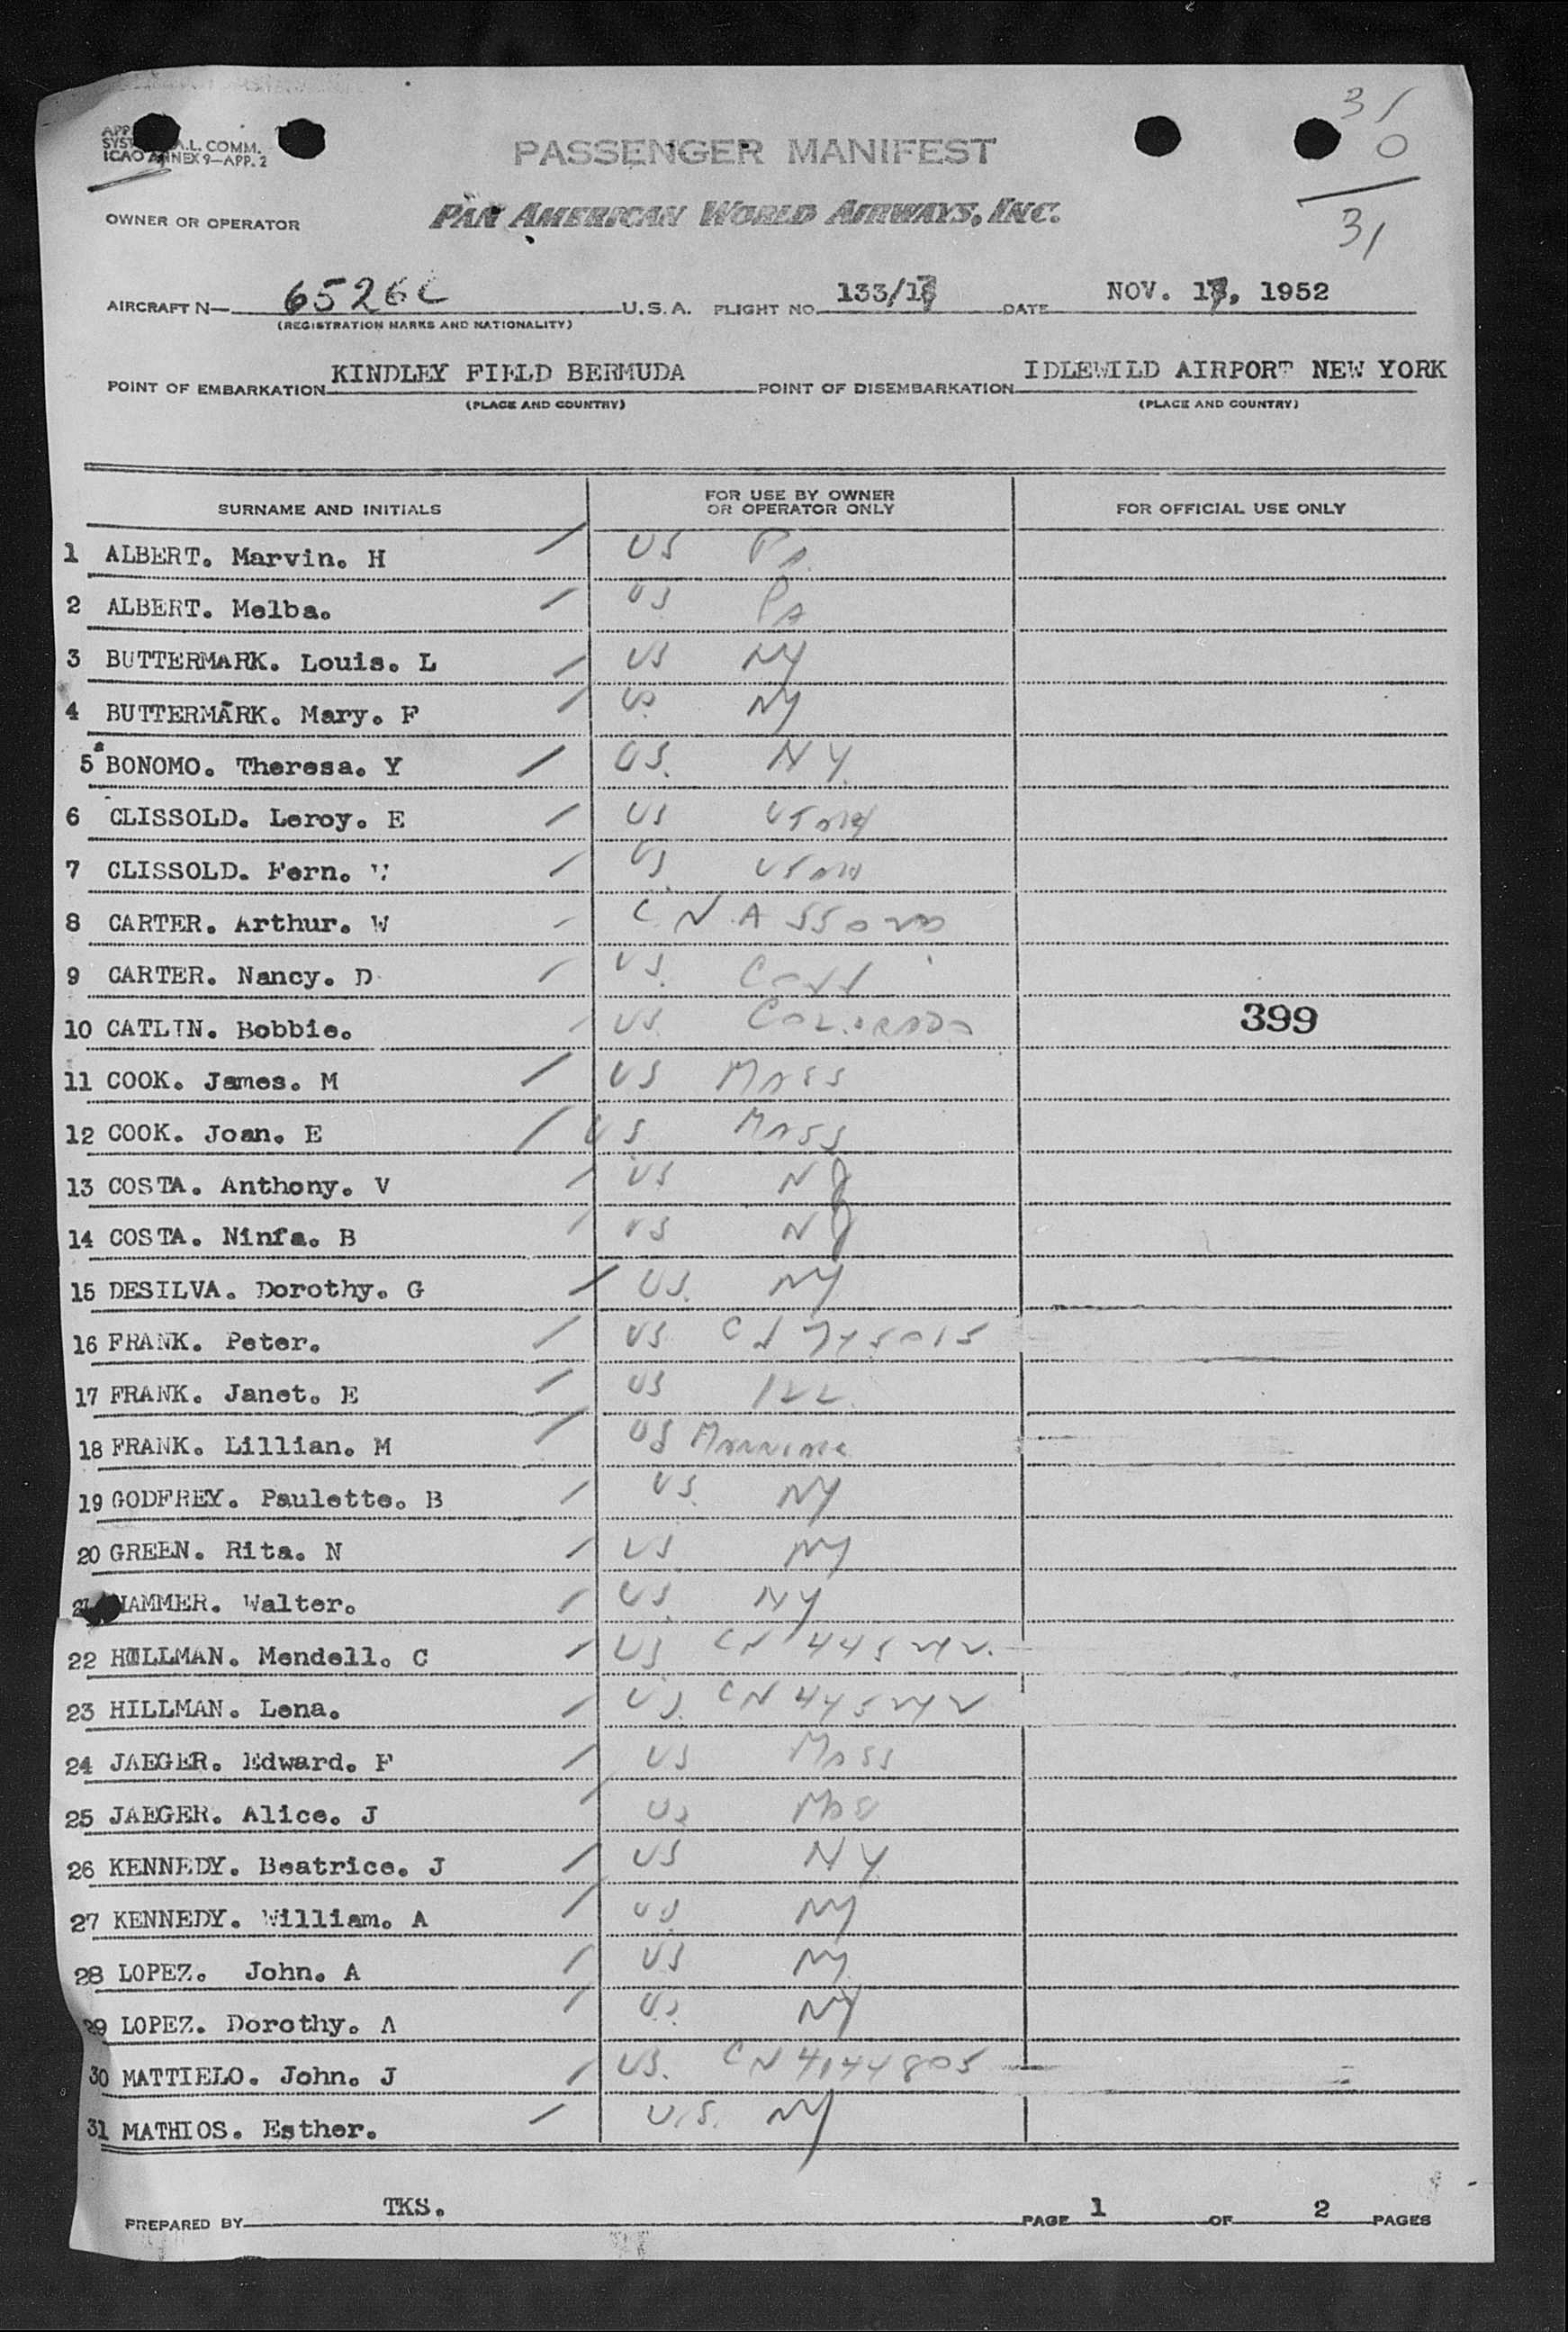 31
0
31
APP
SYST A.L. COMM.
ICAO ANNEX 9—APP. 2
PASSENGER MANIFEST
OWNER OR OPERATOR PAN AMERICAN WORLD AIRWAYS, INC.
AIRCRAFT N— 6526C U.S.A. FLIGHT NO. 133/18 DATE NOV. 1, 1952
(REGISTRATION MARKS AND NATIONALITY)
POINT OF EMBARKATION KINDLEY FIELD BERMUDA POINT OF DISEMBARKATION IDLEWILD AIRPORT NEW YORK
(PLACE AND COUNTRY) (PLACE AND COUNTRY)
SURNAME AND INITIALS FOR USE BY OWNER OR OPERATOR ONLY FOR OFFICIAL USE ONLY
1 ALBERT. Marvin. H US Pa.
2 ALBERT. Melba. US PA
3 BUTTERMARK. Louis. L US NY
4 BUTTERMARK. Mary. F US NY
5 BONOMO. Theresa. Y US. NY.
6 CLISSOLD. Leroy. E US UTAH
7 CLISSOLD. Fern. US UTAH
8 CARTER. Arthur. W CN A
9 CARTER. Nancy. D US.
10 CATLIN. Bobbie. US COLORADO 399
11 COOK. James. M US MASS
12 COOK. Joan. E US MASS
13 COSTA. Anthony. V US NJ
14 COSTA. Ninfa. B US NJ
15 DESILVA. Dorothy. G US. NY
16 FRANK. Peter. US
17 FRANK. Janet. E US ILL.
18 FRANK. Lillian. M US
19 GODFREY. Paulette. B US. NY
20 GREEN. Rita. N US NY
21 HAMMER. Walter. US NY
22 HILLMAN. Mendell. C US CN
23 HILLMAN. Lena. US. CN
24 JAEGER. Edward. F US MASS
25 JAEGER. Alice. J US
26 KENNEDY. Beatrice. J US NY.
27 KENNEDY. William. A US NY
28 LOPEZ. John. A US NY
29 LOPEZ. Dorothy. A US NY
30 MATTIELO. John. J US. CN 4144805
31 MATHIOS. Esther. U.S. NY
PREPARED BY TKS. PAGE 1 OF 2 PAGES